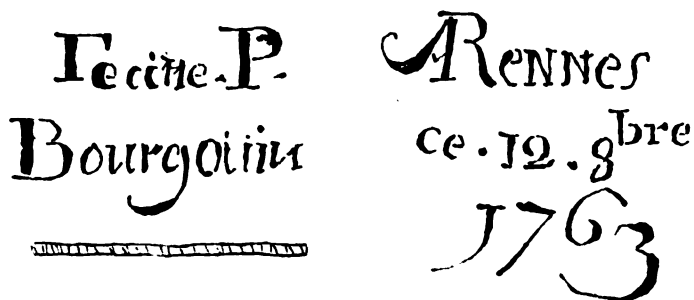 Fecitte. P.
Bourgoiiin
A Rennes
ce. 12. 8bre
1763